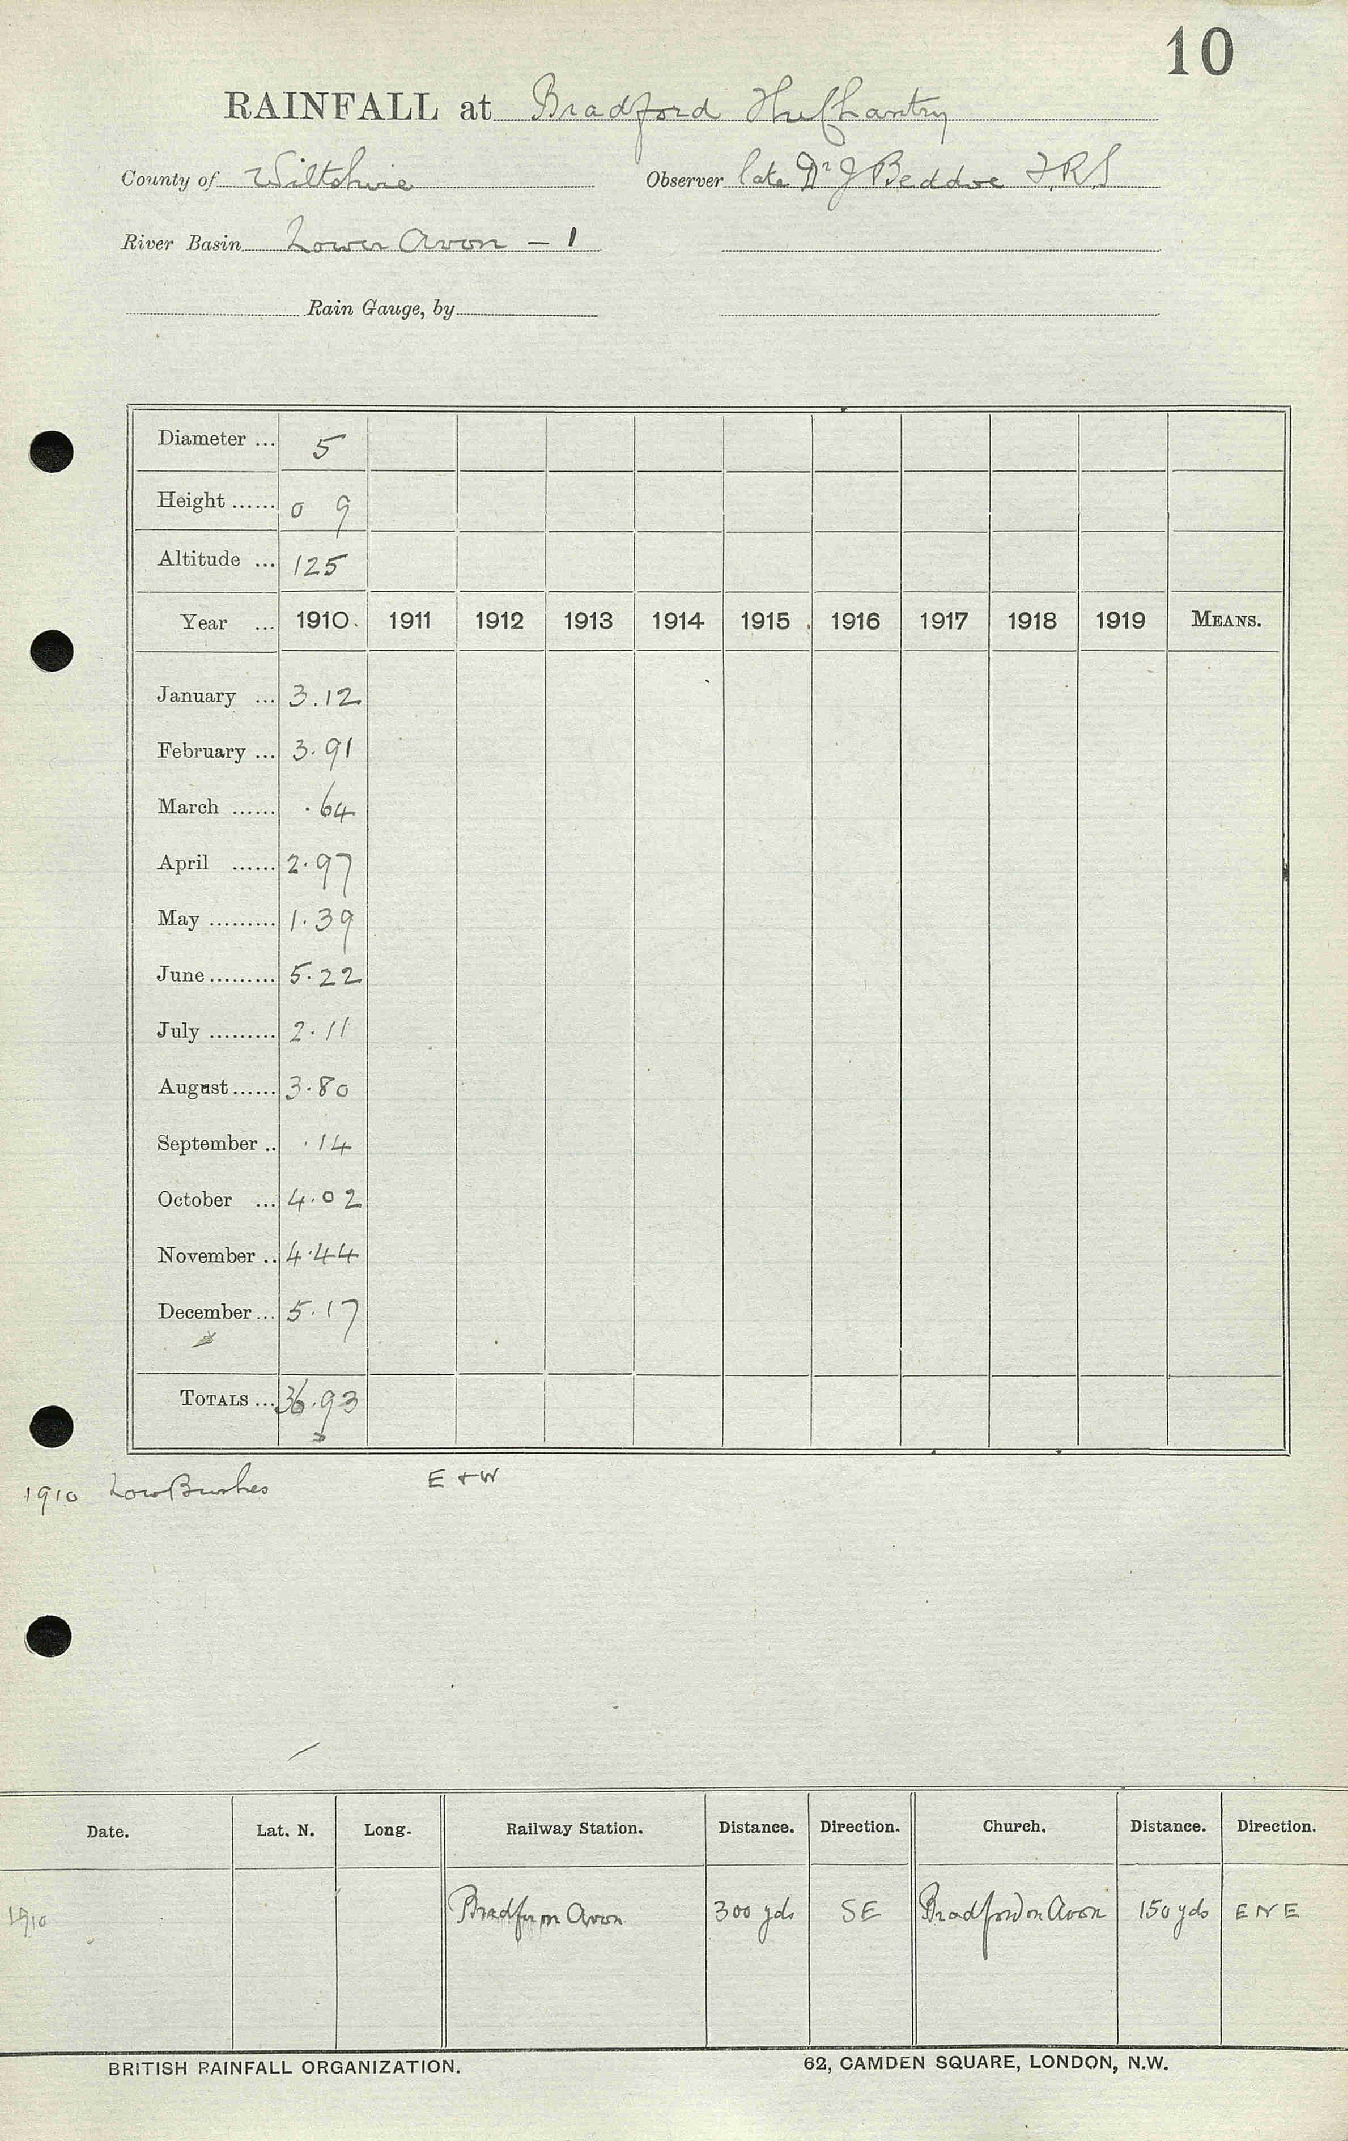 10
RAINFALL at Bradford The Chantry
County of Wiltshire Observer late Dr J Beddoe F.R.S
River Basin Lower Avon - 1
Rain Gauge, by
Diameter ... 5
Height ...... 0 9
Altitude ... 125
Year ... 1910. 1911 1912 1913 1914 1915 1916 1917 1918 1919 MEANS.
January ... 3.12
February ... 3.91
March ...... .64
April ...... 2.97
May ......... 1.39
June ......... 5.22
July ......... 2.11
August ...... 3.80
September .. .14
October ... 4.02
November .. 4.44
December ... 5.17
TOTALS ... 36.93
1910 Low Bushes E + W
Date. Lat. N. Long. Railway Station. Distance. Direction. Church. Distance. Direction.
1910 Bradf on Avon 300 yds SE Bradford on Avon 150 yds ENE
BRITISH RAINFALL ORGANIZATION. 62, CAMDEN SQUARE, LONDON, N.W.